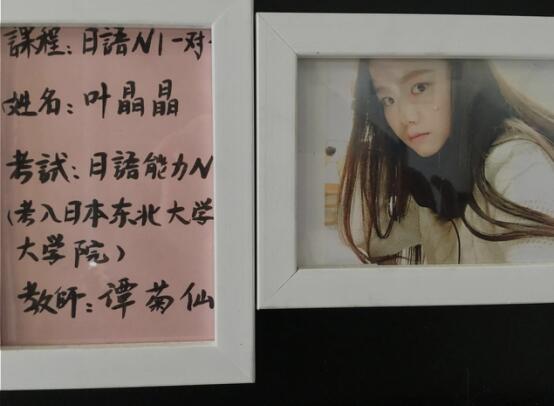 課程：日語N1一对
姓名：叶晶晶
考試：日語能力N
(考入日本东北大学
大学院)
教師：谭菊仙